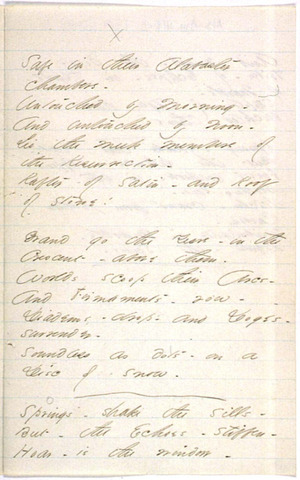 Safe in their Alabaster
Chambers -
Untouched by Morning -
And untouched by Noon -
Lie the meek members of
the Resurrection -
Rafter of Satin - and Roof
of Stone!
Grand go the Years - in the
Crescent - above them -
Worlds scoop their Arcs -
And Firmaments - row -
Diadems - drop - and Doges -
surrender -
Soundless as dots - on a
Disc of Snow -
Springs - shake the sills -
But - the Echoes - stiffen -
Hoar - is the window -